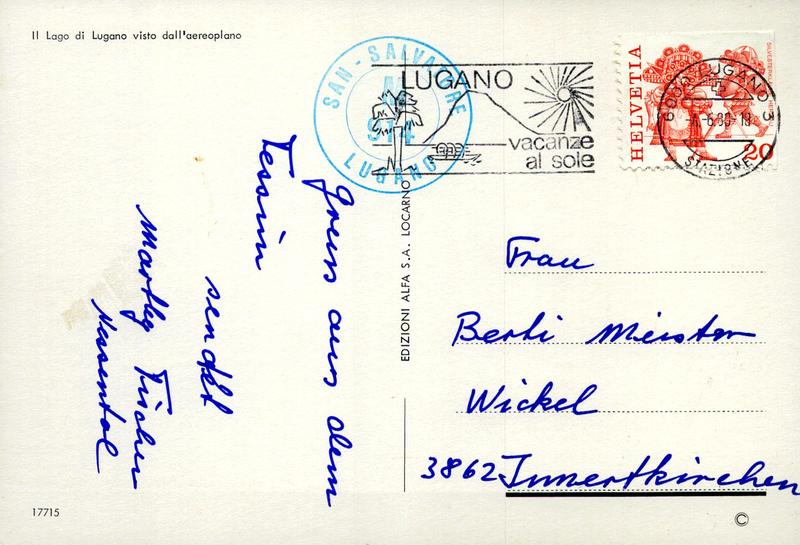 Il Lago di Lugano visto dall'aereoplano
SAN-SALVATORE
LUGANO
LUGANO
vacanze
al sole
HELVETIA
20
6900 LUGANO 3
STAZIONE
Gruss aus dem
Tessin
sendet
Martly Fischer
Nessental
EDIZIONI ALFA S.A. LOCARNO
Frau
Berti Meister
Wickel
3862 Innertkirchen
17715
©